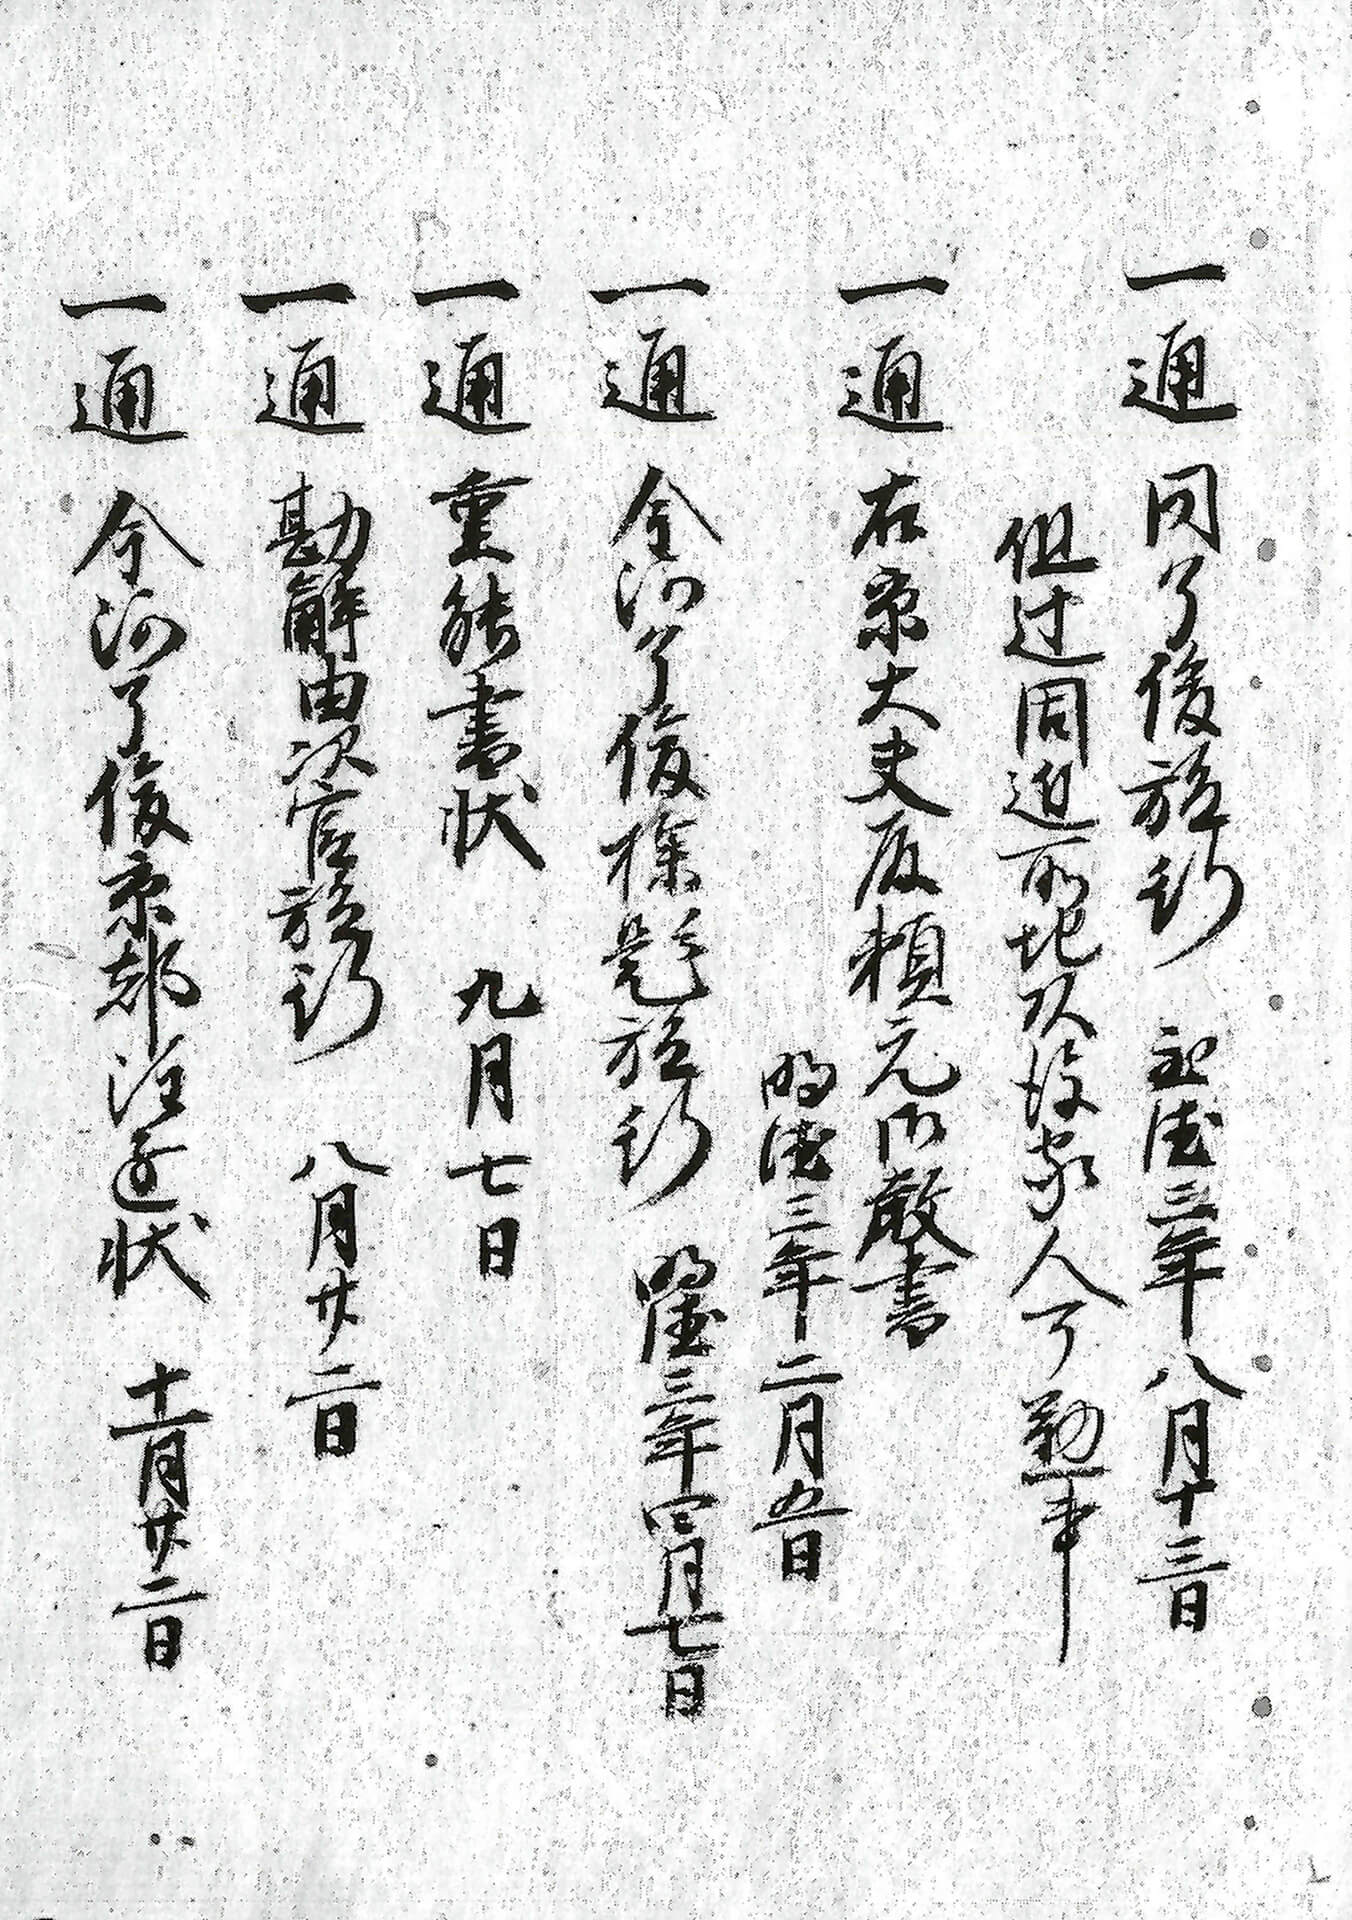 一通 同了俊施行 永徳三年八月十三日
但过同迫所地以後家人了勤事
一通 右京大夫殿頼元御教書
明徳三年二月五日
一通 今河了俊探題施行 明徳三年四月七日
一通 重能書状 九月七日
一通 勘解由次官施行 八月廿二日
一通 今河了俊京都注進状 十一月廿二日